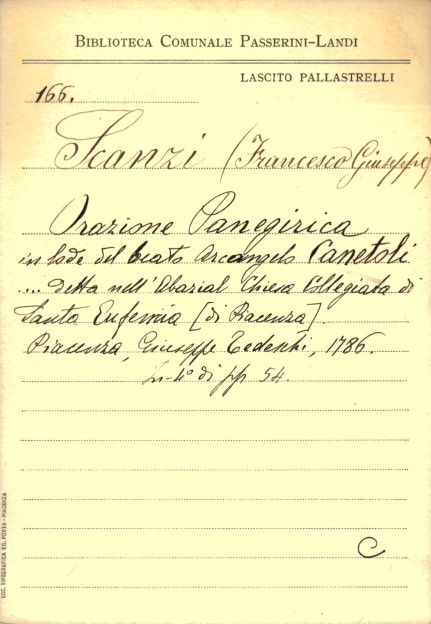 BIBLIOTECA COMUNALE PASSERINI-LANDI
LASCITO PALLASTRELLI
166.
Scanzi (Francesco Giuseppe)
Orazione Panegirica
in lode del beato Arcangelo Canetoli
... detta nell'Abazial Chiesa Collegiata di
Santa Eufemia [di Piacenza].
Piacenza, Giuseppe Tedeschi, 1786.
In-4° di pp 54.
C
SOC. TIPOGRAFICA ED. PORTA - PIACENZA